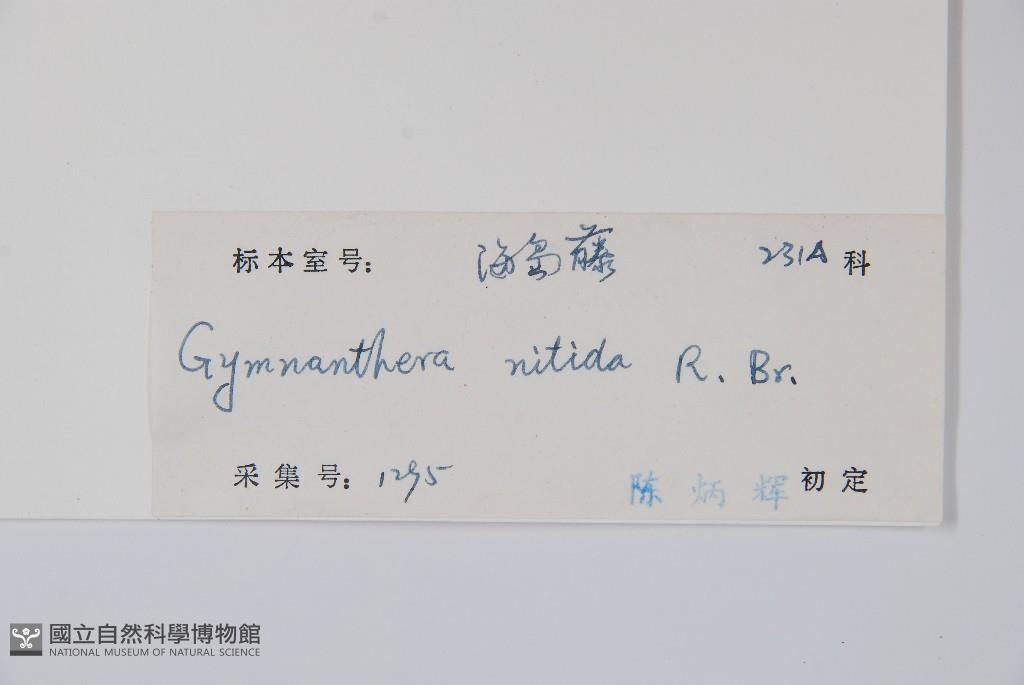 标本室号: 海岛藤 231A 科
Gymnanthera nitida R. Br.
采集号: 1295 陈炳辉 初定
國立自然科學博物館
NATIONAL MUSEUM OF NATURAL SCIENCE